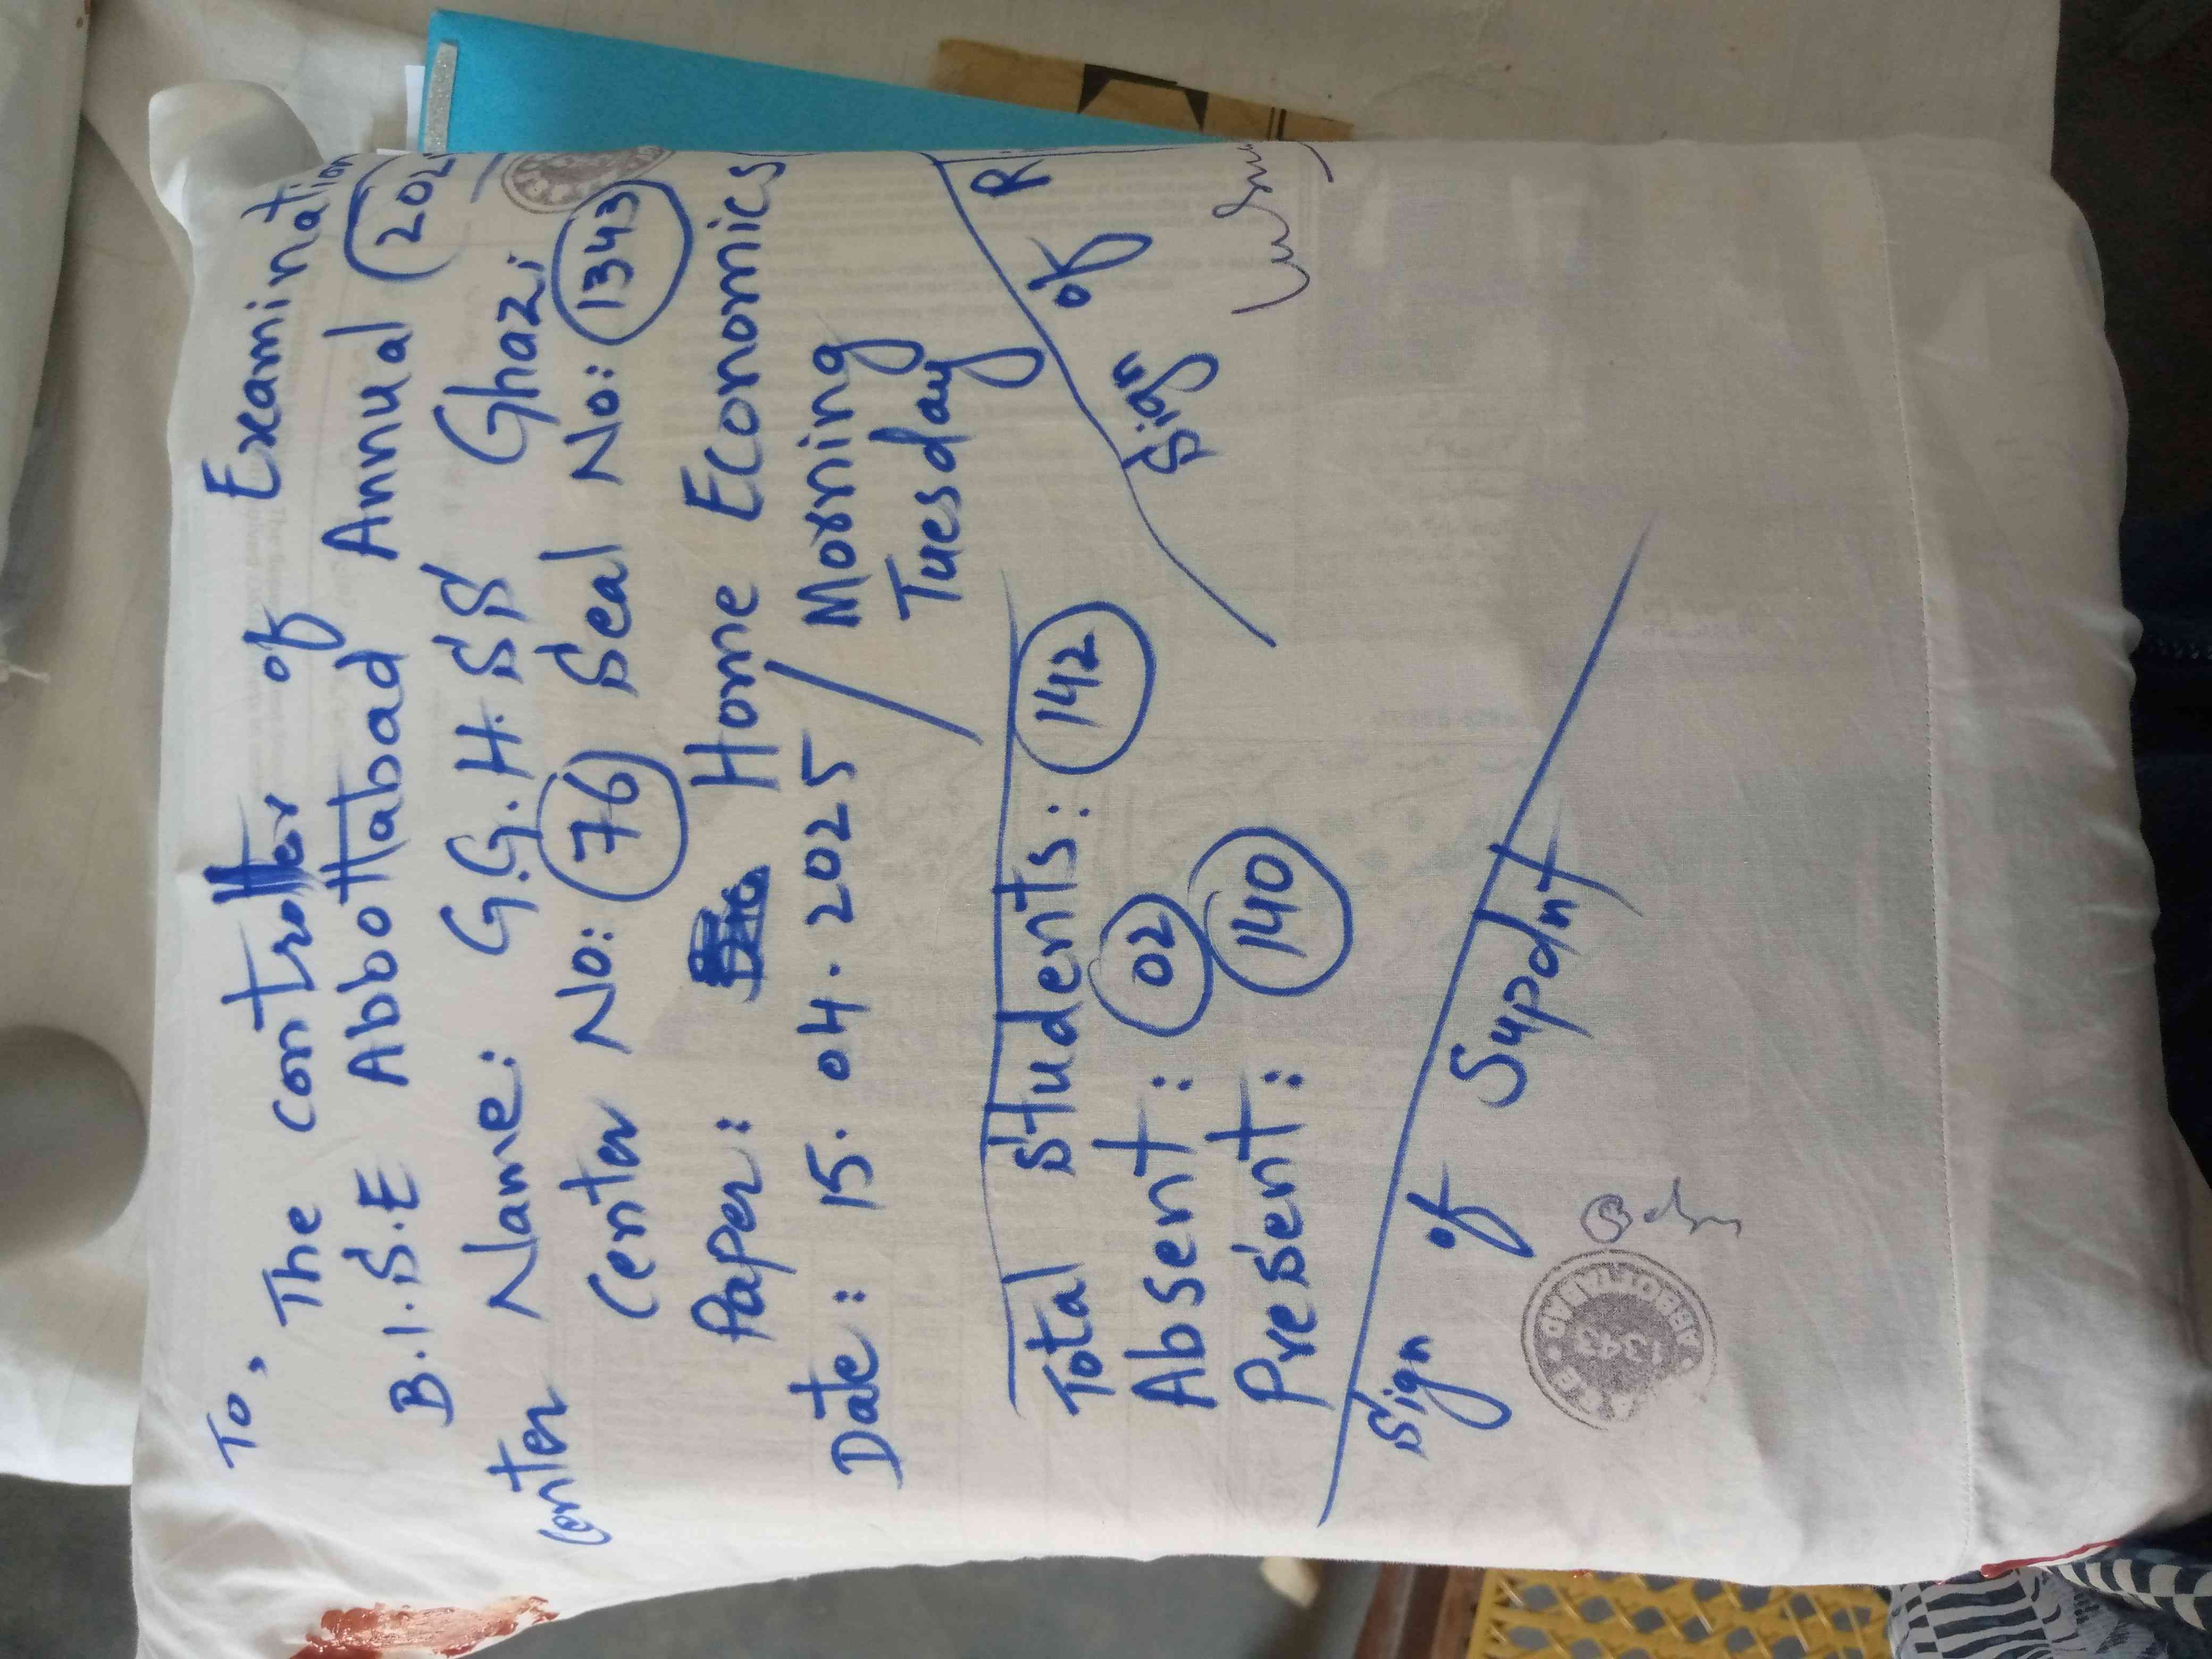 To,
The controller of Examination
B.I.S.E Abbottabad Annual
Center Name: G.G.H.SS Ghazi
Center No: 76 Seal No: 1343
Paper: Home Economics
Date: 15.04.2025 / Morning
Tuesday
Total Students: 142
Absent: 02
Present: 140
Sign of R
Sign of Supdnt
1343
ABBOTTABAD